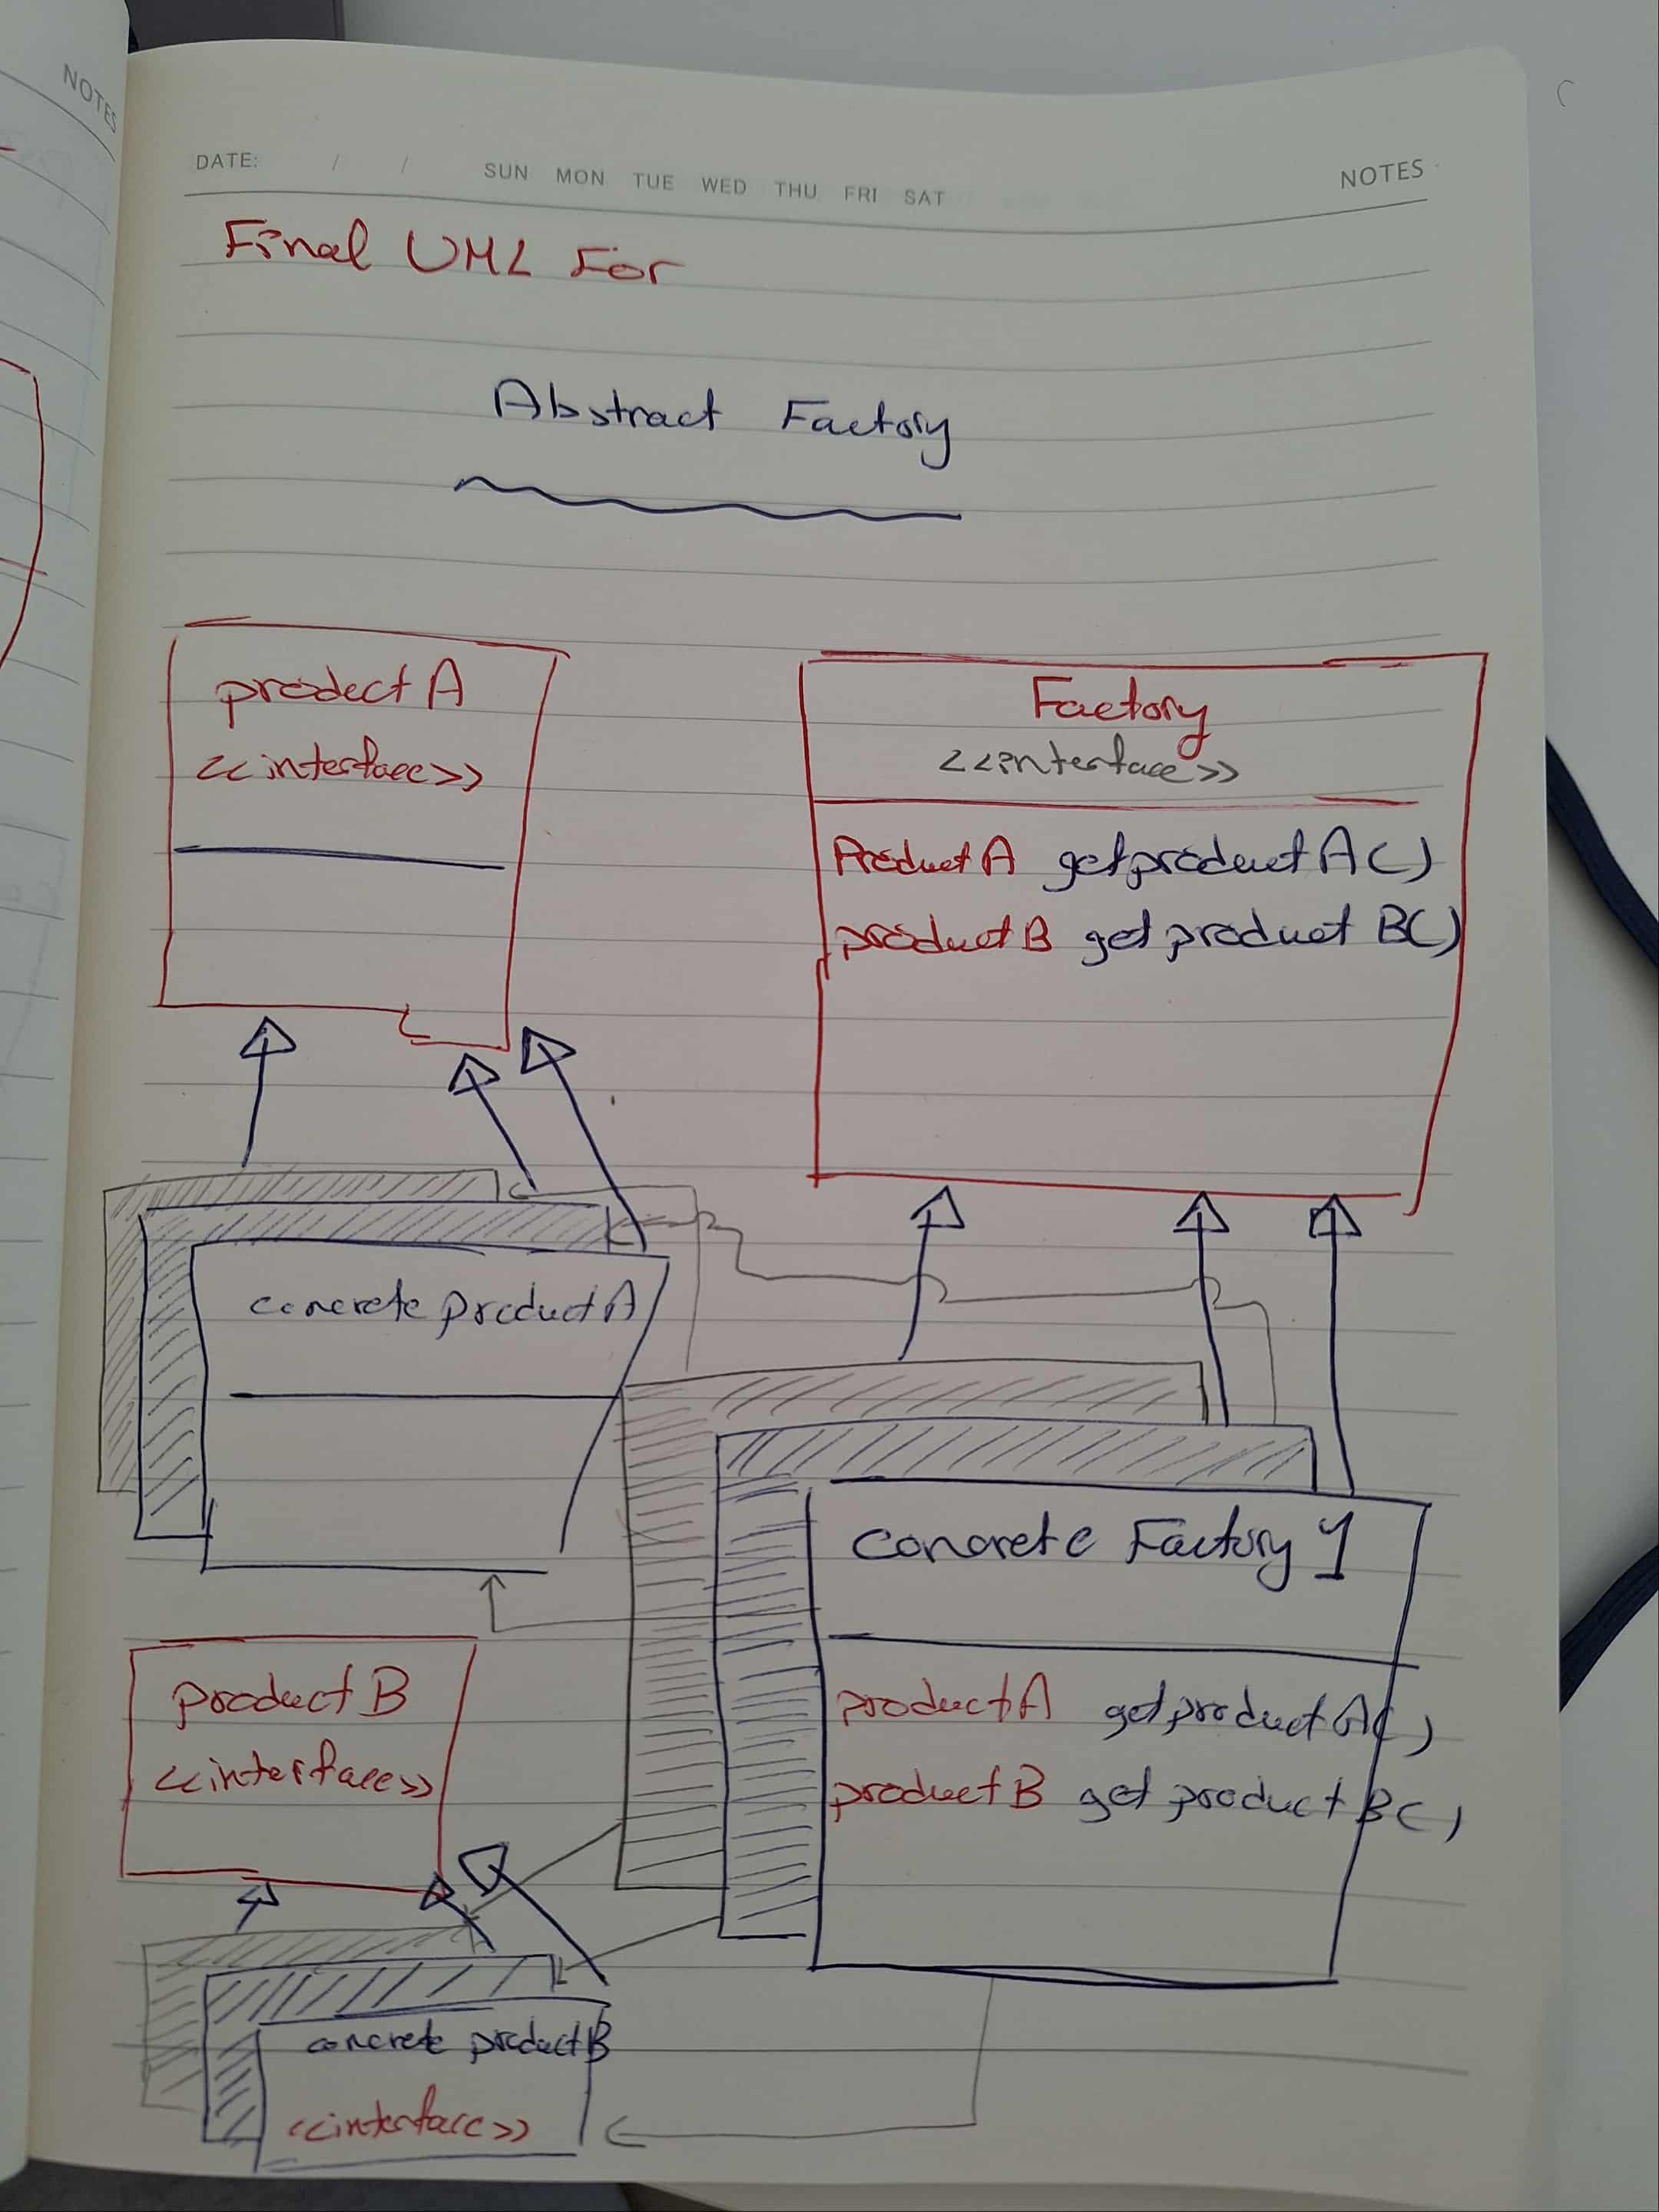 NOTES
DATE: / / SUN MON TUE WED THU FRI SAT NOTES
Final UML For
Abstract Factory
prodectA
<<interface>>
Factory
<<interface>>
ProductA getproductA()
productB getproduct B()
concrete productA
concrete Factory 1
productA getproductA()
productB getproductB()
productB
<<interface>>
concrete productB
<<interface>>